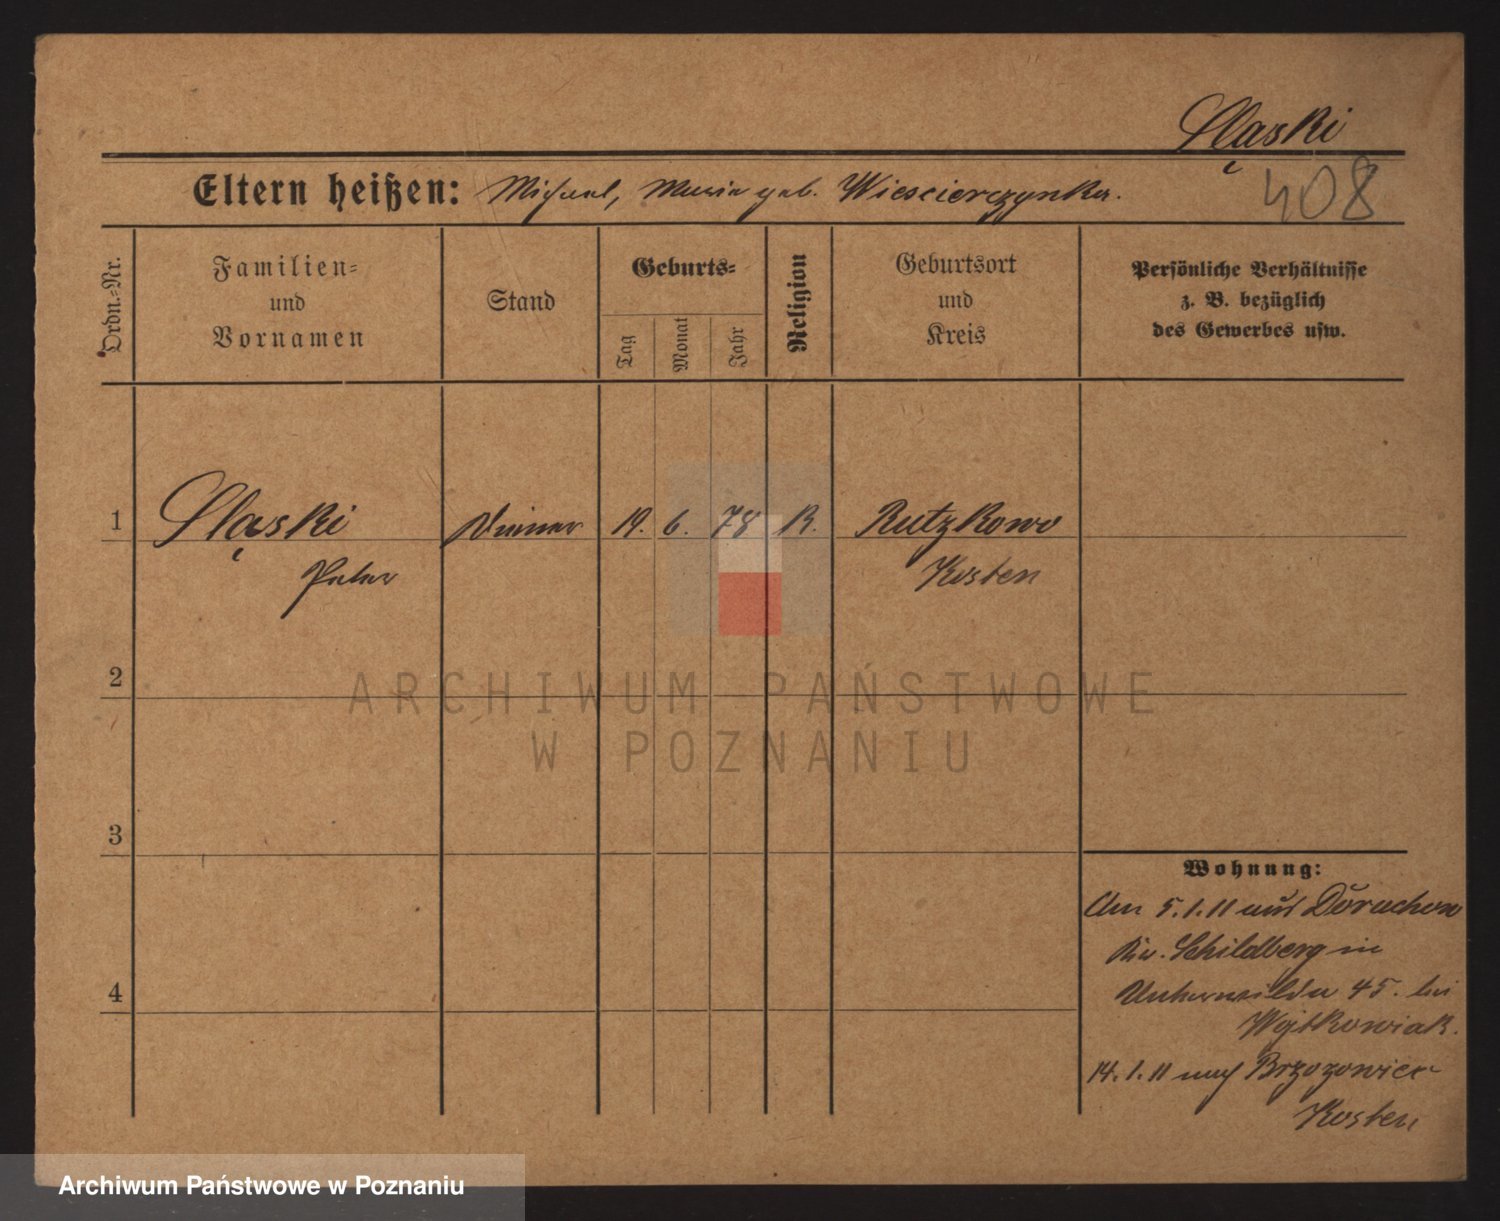 Sląski
Eltern heißen: Michael, Maria geb. Wiescierczynka.
408
Ordn.-Nr.
Familien-
und
Vornamen
Stand
Geburts-
Tag
Monat
Jahr
Religion
Geburtsort
und
Kreis
Persönliche Verhältnisse
z. B. bezüglich
des Gewerbes usw.
1 Sląski Diener 19. 6. 78 K. Rutzkowo
Peter Kosten
2
3
4
Wohnung:
Am 5.1.11 aus Doruchow
Kr. Schildberg in
Unterwilda 45. bei
Wojtkowiak.
14.1.11 nach Brzozowiec
Kosten
ARCHIWUM PAŃSTWOWE
W POZNANIU
Archiwum Państwowe w Poznaniu